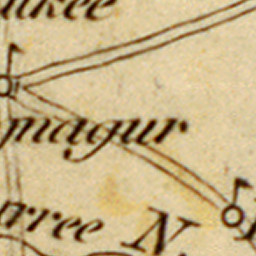 ukee
magur
rree N